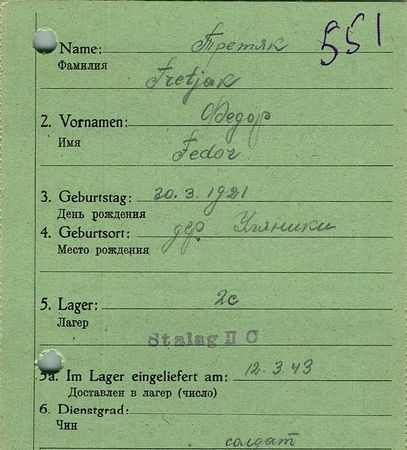 551
Name: Третяк
Фамилия
Tretjak
2. Vornamen: Федор
Имя
Fedor
3. Geburtstag: 30.3.1921
День рождения
4. Geburtsort: дер Угяники
Место рождения
5. Lager: 2c
Лагер
Stalag II C
5a. Im Lager eingeliefert am: 12.3.43
Доставлен в лагер (число)
6. Dienstgrad:
Чин
солдат